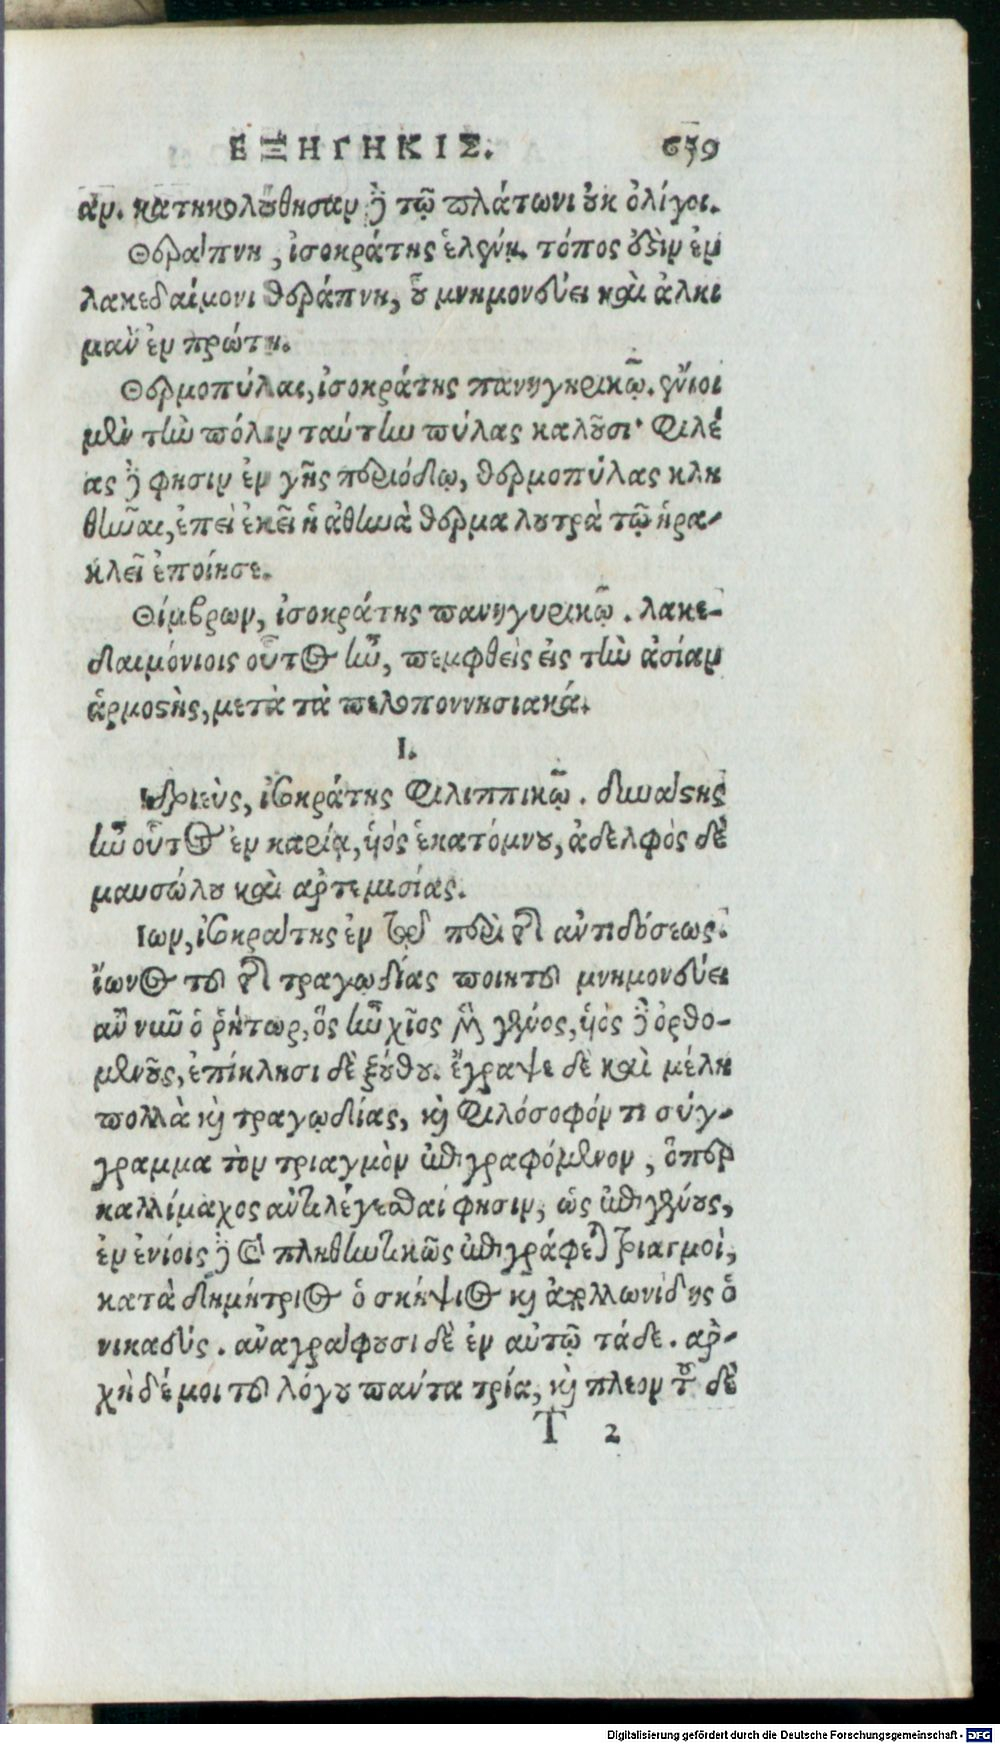 ΕΞΗΓΗΚΙΣ. 659
αν. κατηκολούθησαν δὲ τῷ πλάτωνι οὐκ ὀλίγοι.
Θεράπνη, ἰσοκράτης ἑλένῃ. τόπος ἐστὶν ἐν
λακεδαίμονι θεράπνη, οὗ μνημονεύει καὶ ἀλκι
μαν ἐν πρώτῃ.
Θερμοπύλαι, ἰσοκράτης πανηγηρικῷ. ἔνιοι
μὲν τὴν πόλιν ταύτην πύλας καλοῦσι· Φιλέ
ας δὲ φησιν ἐν γῆς περιόδῳ, θερμοπύλας κλη
θῆναι, ἐπεὶ ἐκεῖ ἡ ἀθηνὰ θερμὰ λουτρὰ τῷ ἡρα-
κλεῖ ἐποίησε.
Θίμβρων, ἰσοκράτης πανηγυρικῷ. λακε-
δαιμόνιοις οὗτος ἦν, πεμφθεὶς εἰς τὴν ἀσίαν
ἁρμοστὴς, μετὰ τὰ πελοποννησιακά.
Ι.
Ιδριεὺς, ἰσοκράτης Φιλιππικῷ. δυνάστης
ἦν οὗτος ἐν καρίᾳ, ὑὸς ἑκατόμνου, ἀδελφὸς δὲ
μαυσώλου καὶ ἀρτεμισίας.
Ιων, ἰσοκράτης ἐν τῷ περὶ τῆς ἀντιδόσεως.
ἴωνος τοῦ τῆς τραγωδίας ποιητοῦ μνημονεύει
ἂν νῦν ὁ ῥήτωρ, ὃς ἦν χῖος μὲν γένος, ὑὸς δὲ ὀρθο-
μένους, ἐπίκλησι δὲ ξούθου. ἔγραψε δὲ καὶ μέλη
πολλὰ καὶ τραγῳδίας, καὶ Φιλόσοφόν τι σύγ-
γραμμα τὸν τριαγμὸν ἐπιγραφόμενον, ὅπερ
καλλίμαχος ἀντιλέγεσθαί φησιν, ὡς ἐπιγένους,
ἐν ἐνίοις δὲ καὶ πληθυντικῶς ἐπιγράφεται τριαγμοὶ,
κατὰ δημήτριος ὁ σκήψιος καὶ ἀπολλωνίδης ὁ
νικαεύς. ἀναγράφουσι δὲ ἐν αὐτῷ τάδε. ἀρ-
χὴ δέ μοι τοῦ λόγου πάντα τρία, καὶ πλεον τούτου δὲ
T 2
Digitalisierung gefördert durch die Deutsche Forschungsgemeinschaft - DFG